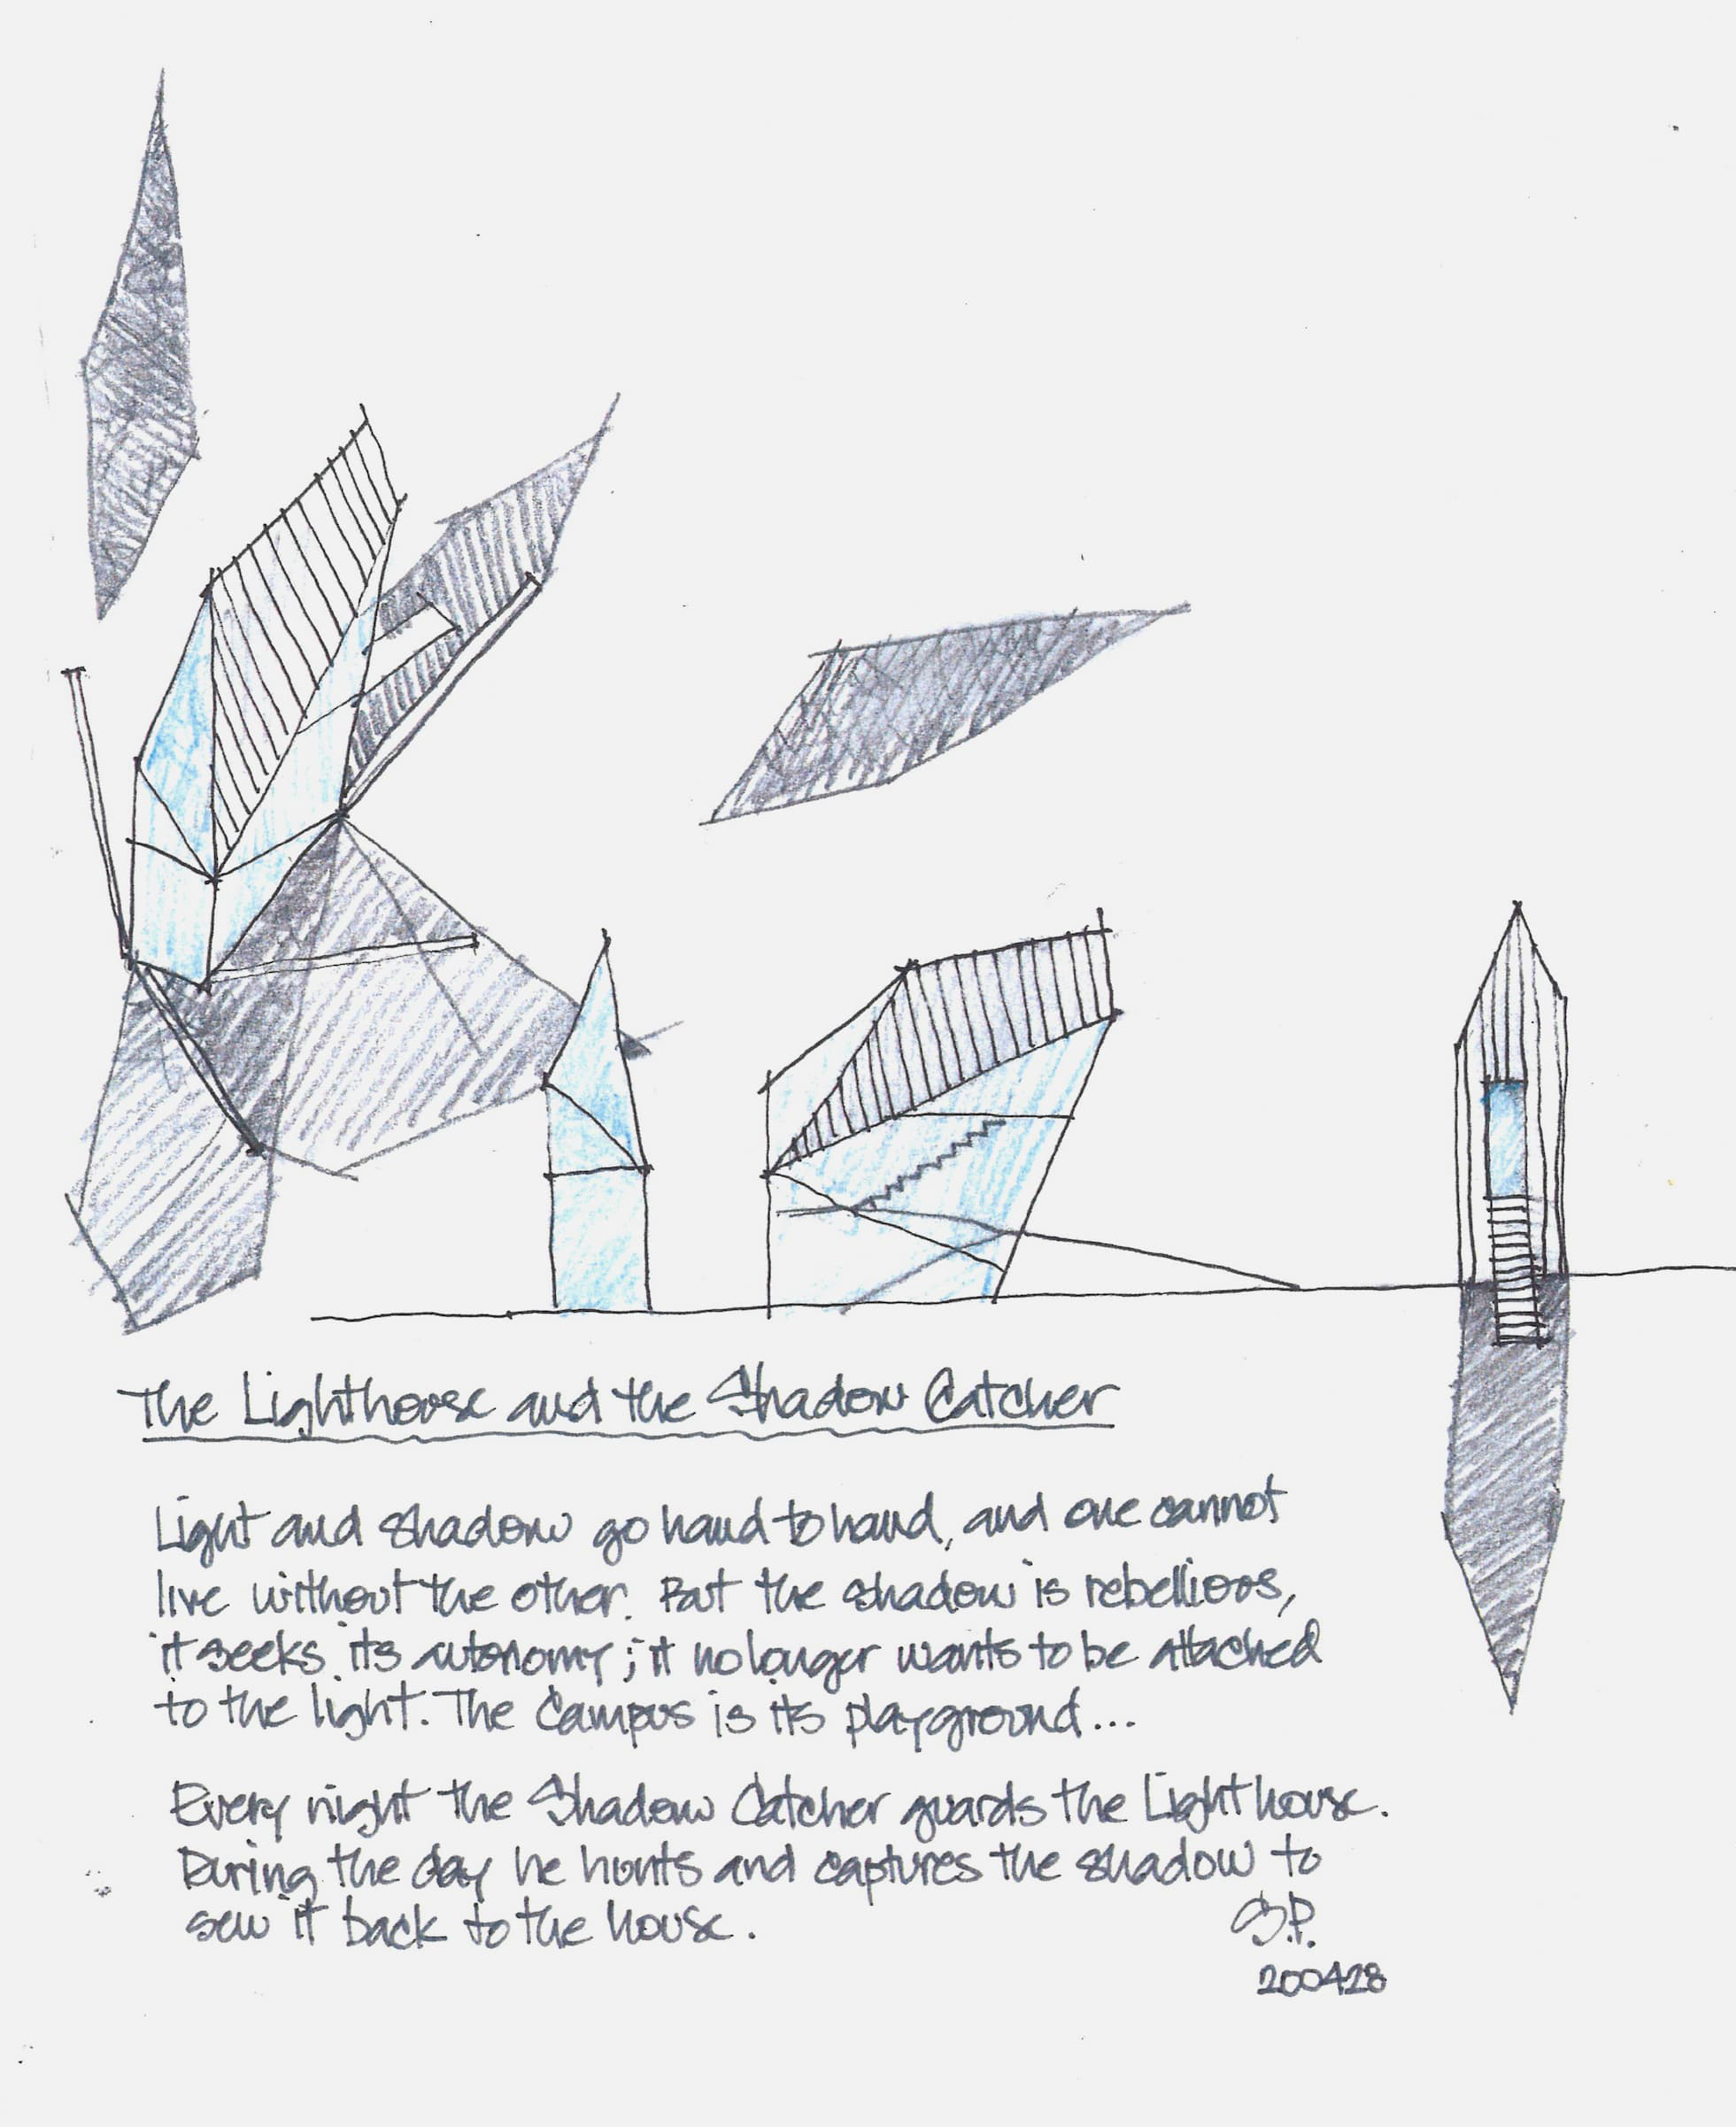 The Lighthouse and the Shadow Catcher
Light and shadow go hand to hand, and one cannot
live without the other. But the shadow is rebellious,
it seeks its autonomy; it no longer wants to be attached
to the light. The Campus is its playground...
Every night the Shadow Catcher guards the Lighthouse.
During the day he hunts and captures the shadow to
sew it back to the house.
S.P.
200428